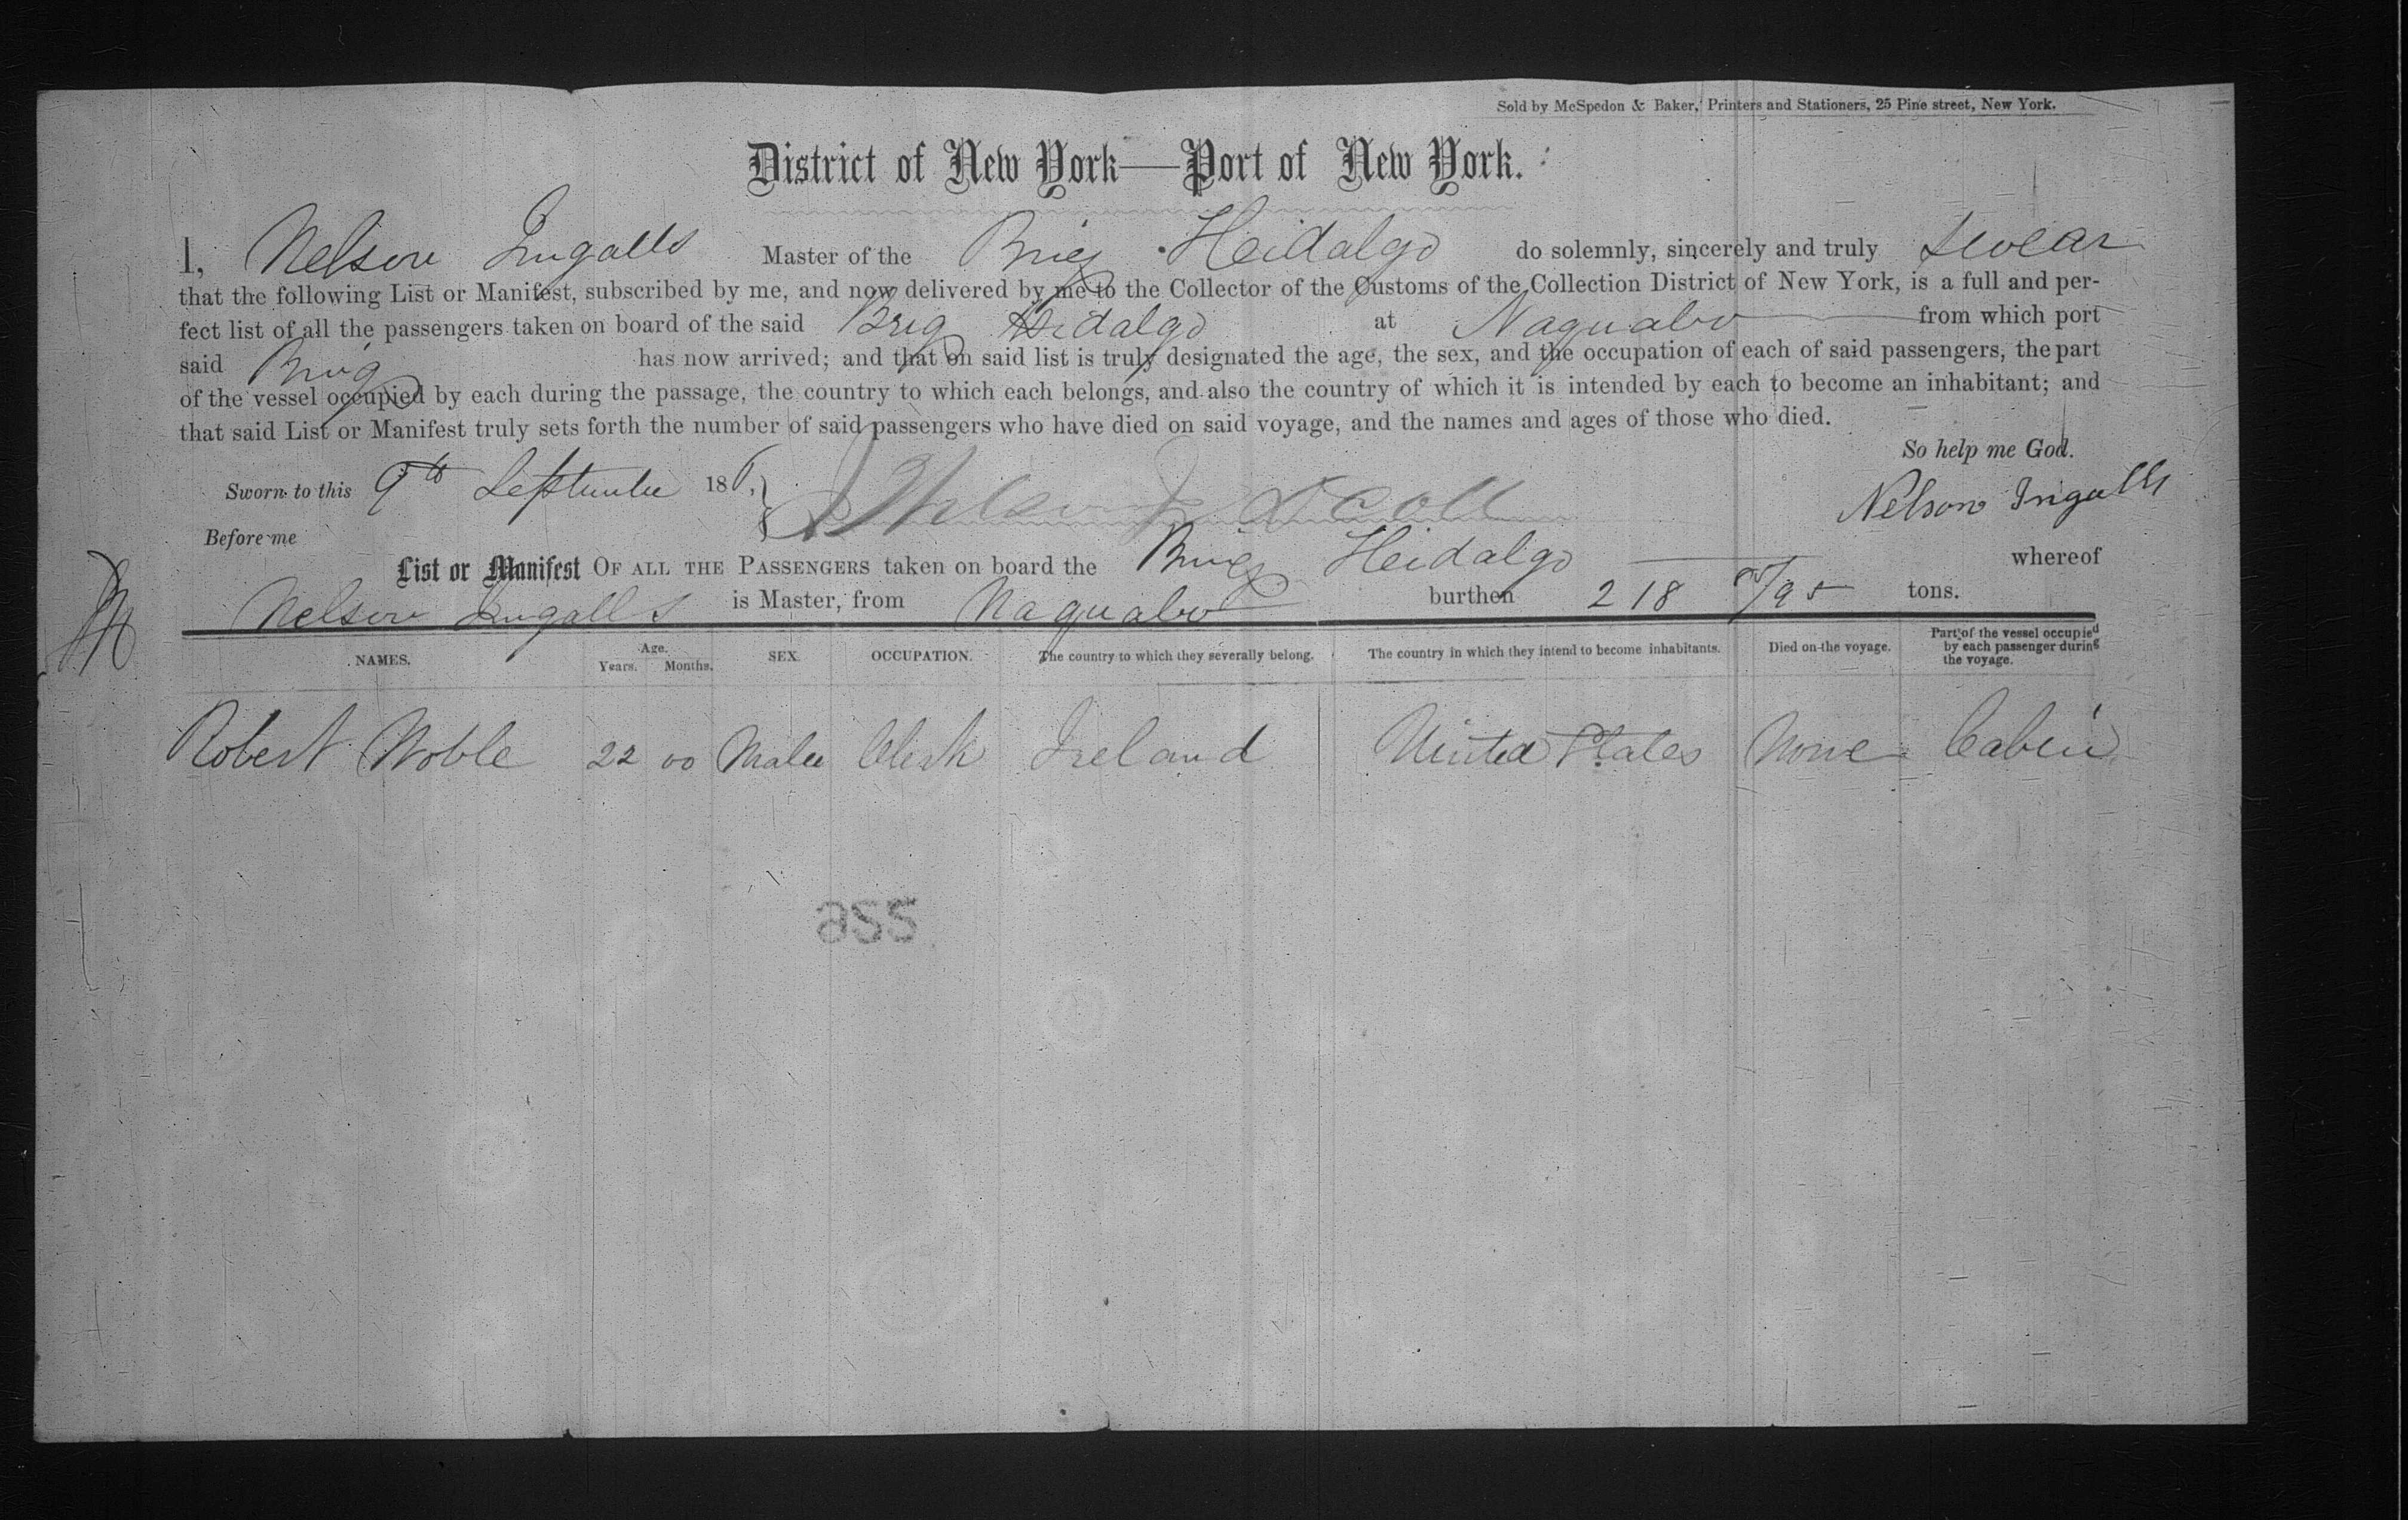 Sold by McSpedon & Baker, Printers and Stationers, 25 Pine street, New York.
District of New York—Port of New York.
I, Nelson Ingalls Master of the Brig Heidalgo do solemnly, sincerely and truly swear
that the following List or Manifest, subscribed by me, and now delivered by me to the Collector of the Customs of the Collection District of New York, is a full and per-
fect list of all the passengers taken on board of the said Brig Hidalgo at Naguabo from which port
said Brig has now arrived; and that on said list is truly designated the age, the sex, and the occupation of each of said passengers, the part
of the vessel occupied by each during the passage, the country to which each belongs, and also the country of which it is intended by each to become an inhabitant; and
that said List or Manifest truly sets forth the number of said passengers who have died on said voyage, and the names and ages of those who died.
So help me God.
Sworn to this 9th September 186, Nelson Ingalls
Before me
List or Manifest OF ALL THE PASSENGERS taken on board the Brig Heidalgo whereof
Nelson Ingalls is Master, from Naguabo burthen 218 /95 tons.
NAMES. Age. Years. Months. SEX. OCCUPATION. The country to which they severally belong. The country in which they intend to become inhabitants. Died on the voyage. Part of the vessel occupied by each passenger during the voyage.
Robert Noble 22 00 Male Clerk Ireland United States None Cabin